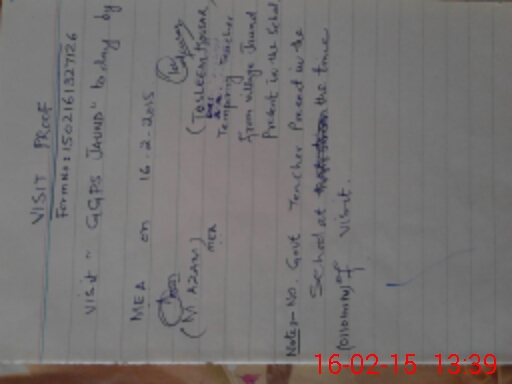 VISIT PROOF
Form No: 1502161327126
Visit " GGPS JAUND" today by
MEA on 16.2.2015
(M AZAM)
MEA
(Tasleem Kousar)
Temprory Teacher
from village Jaund
Present in the School
Note:- No. Govt Teacher Present in the
School at the time
of Visit.
16-02-15 13:39